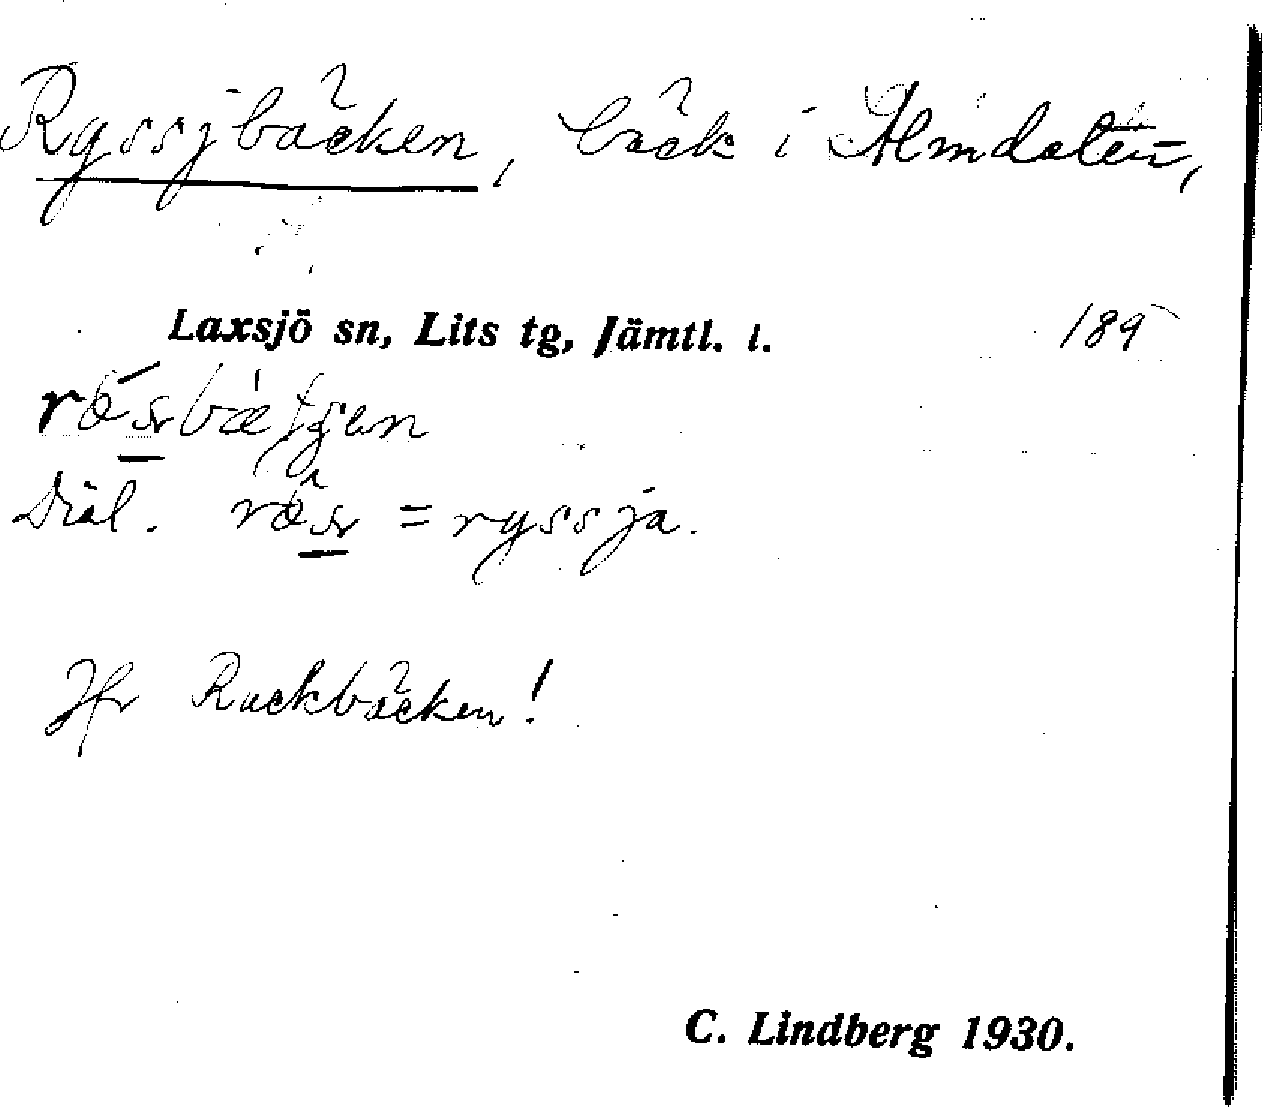 Ryssjbäcken, bäck i Almdalen,
Laxsjö sn, Lits tg, Jämtl. l. 189
Dial. = ryssja.
Jfr Ruckbäcken!
C. Lindberg 1930.